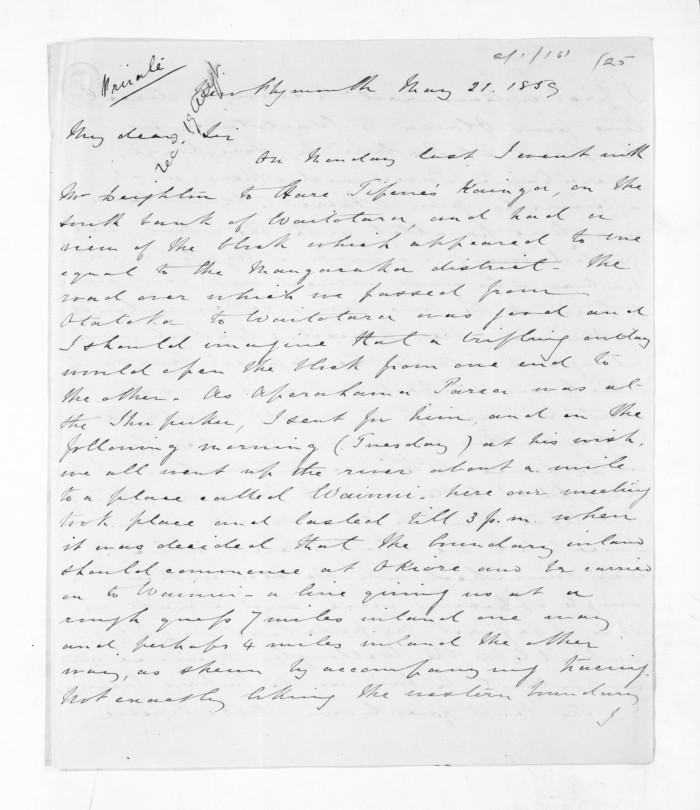 Private
125
New Plymouth May 21. 1859
My dear Sir
On Monday last I went with
Mr Deighton to Hare Tipene's Kainga, on the
south bank of Waitotara, and had a
view of the block which appeared to me
equal to the Mangaraka district - the
road over which we passed from
Otatoka to Waitotara was good and
I should imagine that a trifling outlay
would open the block from one end to
the other. As Aperahama Parea was at
the Ihupuku, I sent for him, and on the
following morning (Tuesday) at his wish,
we all went up the river about a mile
to a place called Wainui - here our meeting
took place and lasted till 3 p.m. when
it was decided that the boundary inland
should commence at Okiore and be carried
on to Wainui - a line giving us at a
rough guess 7 miles inland one way
and perhaps 4 miles inland the other
way, as shewn by accompanying tracing.
Not exactly liking the western boundary
I